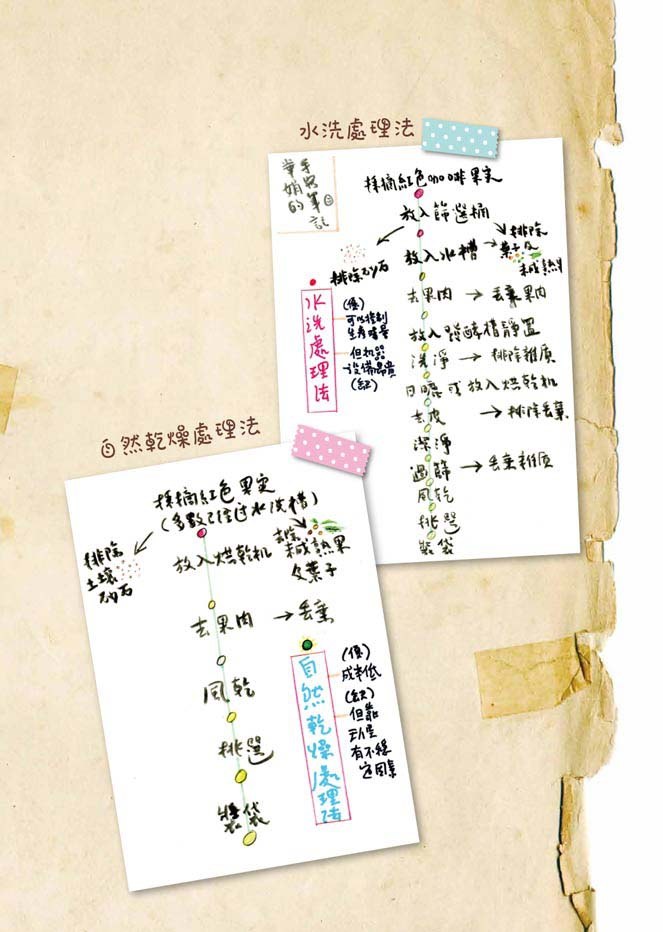 水洗處理法
華娟的
手写筆記
採摘紅色咖啡果实
放入篩選桶
排除砂石
排除
葉子及
未成熟
放入水槽
去果肉 → 丟棄果肉
放入發酵槽靜置
洗淨 → 排除雜質
日曬或放入烘乾机
去皮 → 排除丟棄
潔淨
過篩 → 丟棄雜质
風乾
挑選
裝袋
水洗處理法
(優)
可以控制
生產
但机器
設備昂貴
(缺)
自然乾燥處理法
採摘紅色果实
(多數已經过水洗槽)
排除
土壤
砂石
去除
未成熟果
及葉子
放入烘乾机
去果肉 → 丟棄
風乾
挑選
裝袋
自然乾燥處理法
(優)
成本低
(缺)
但靠
有不穩
定因素